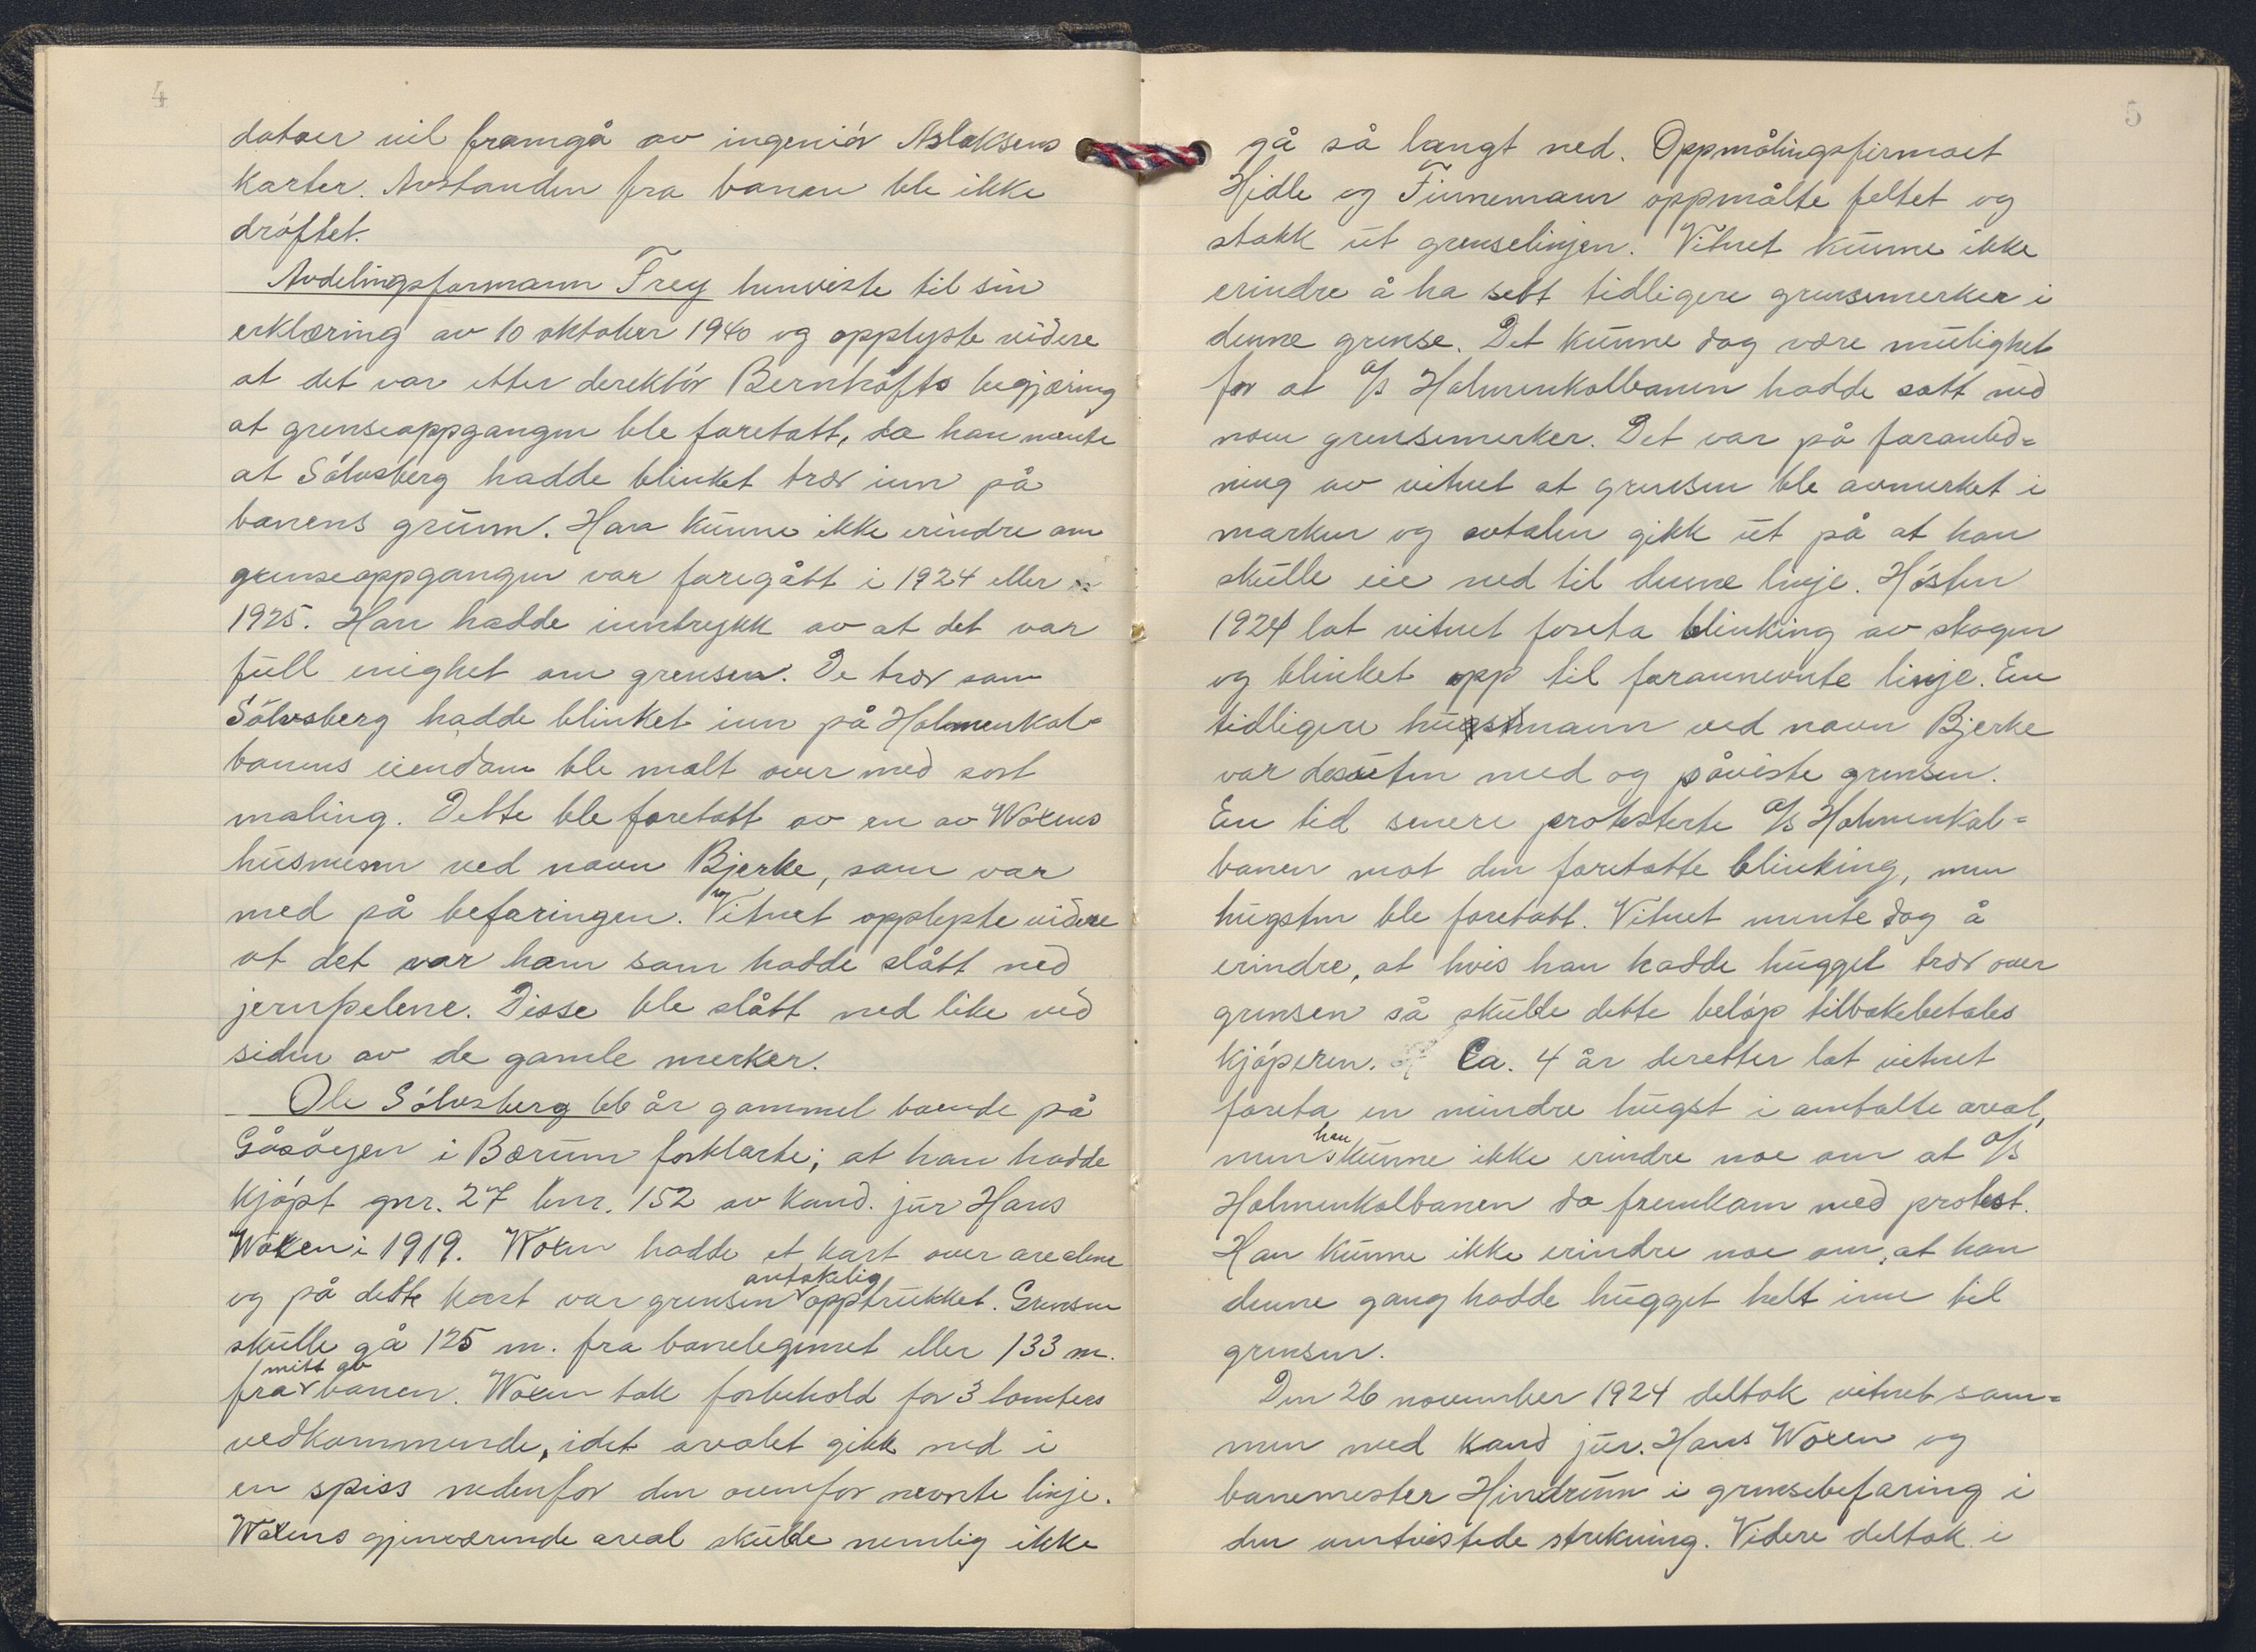 4
datoer vil framgå av ingeniör Aslaksens
karter. Avstanden fra banen ble ikke
dröftet.
Avdelingsformann Frey henviste til sin
erklæring av 10 oktober 1940 og opplyste videre
at det var etter derektör Bernhöfts begjæring
at grenseoppgangen ble foretatt, da han mente
at Sölvsberg hadde blinket trær inn på
banens grunn. Han kunne ikke erindre om
grenseoppgangen var foregått i 1924 eller
1925. Han hadde inntrykk av at det var
full enighet om grensen. De trær som
Sölvsberg hadde blinket inn på Holmenkol-
banens eiendom ble malt over med sort
maling. Dette ble foretatt av en av Woxens
husmenn ved navn Bjerke, som var
med på befaringen. Vitnet opplyste videre
at det var ham som hadde slått ned
jernpelene. Disse ble slått ned like ved
siden av de gamle merker.
Ole Sölvsberg 66 år gammel boende på
Gåsöyen i Bærum forklarte; at han hadde
kjöpt gnr. 27 bnr. 152 av kand. jur Hans
Woxen i 1919. Woxen hadde et kart over arealene
og på dette kart var grensen antakelig opptrukket. Grensen
skulle gå 125 m. fra banelegemet eller 133 m.
fra mitt av banen. Woxen tok forbehold for 3 tomters
vedkommende, idet arealet gikk ned i
en spiss nedenfor den ovenfor nevnte linje.
Woxens gjenværende areal skulde nemlig ikke
5
gå så langt ned. Oppmålingsfirmaet
Hidle og Finnemann oppmålte feltet og
stakk ut grenselinjen. Vitnet kunne ikke
erindre å ha sett tidligere grensemerker i
denne grense. Det kunne dog være mulighet
for at A/S Holmenkolbanen hadde satt ned
noen grensemerker. Det var på foranled=
ning av vitnet at grensen ble avmerket i
marken og avtalen gikk ut på at han
skulle eie ned til denne linje. Hösten
1924 lot vitnet foreta blinking av skogen
og blinket opp til forannevnte linje. En
tidligere husmann ved navn Bjerke
var desuten med og påviste grensen.
En tid senere protesterte A/S Holmenkol=
banen mot den foretatte blinking, men
hugsten ble foretatt. Vitnet mente dog å
erindre, at hvis han hadde hugget trær over
grensen så skulde dette belöp tilbakebetales
kjöperen. Ca. 4 år deretter lot vitnet
foreta en mindre hugst i omtalte areal,
men han kunne ikke erindre noe om at A/S
Holmenkolbanen da fremkom med protest.
Han kunne ikke erindre noe om, at han
denne gang hadde hugget helt inn til
grensen.
Den 26 november 1924 deltok vitnet sam=
men med kand jur. Hans Woxen og
banemester Hindrum i grensebefaring i
den omtvistede strekning. Videre deltok i